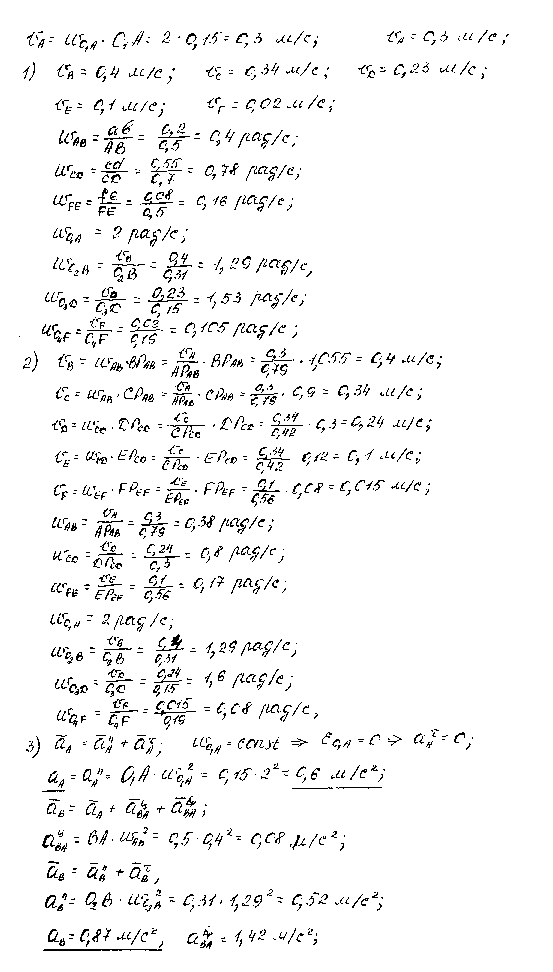 v_A = ω_{O₁A} · O₁A = 2 · 0,15 = 0,3 м/с; v_A = 0,3 м/с;
1) v_B = 0,4 м/с; v_C = 0,34 м/с; v_D = 0,23 м/с;
v_E = 0,1 м/с; v_F = 0,02 м/с;
ω_{AB} = ab/AB = 0,2/0,5 = 0,4 рад/с;
ω_{CD} = cd/CD = 0,55/0,7 = 0,78 рад/с;
ω_{FE} = fe/FE = 0,08/0,5 = 0,16 рад/с;
ω_{O₁A} = 2 рад/с;
ω_{O₂B} = v_B/O₂B = 0,4/0,31 = 1,29 рад/с,
ω_{O₃D} = v_D/O₃D = 0,23/0,15 = 1,53 рад/с;
ω_{O₄F} = v_F/O₄F = 0,02/0,19 = 0,105 рад/с;
2) v_B = ω_{AB} · BP_{AB} = v_A/AP_{AB} · BP_{AB} = 0,3/0,79 · 1,055 = 0,4 м/с;
v_C = ω_{AB} · CP_{AB} = v_A/AP_{AB} · CP_{AB} = 0,3/0,79 · 0,9 = 0,34 м/с;
v_D = ω_{CD} · DP_{CD} = v_C/CP_{CD} · DP_{CD} = 0,34/0,42 · 0,3 = 0,24 м/с;
v_E = ω_{CD} · EP_{CD} = v_C/CP_{CD} · EP_{CD} = 0,34/0,42 · 0,12 = 0,1 м/с;
v_F = ω_{EF} · FP_{EF} = v_E/EP_{EF} · FP_{EF} = 0,1/0,56 · 0,08 = 0,015 м/с;
ω_{AB} = v_A/AP_{AB} = 0,3/0,79 = 0,38 рад/с;
ω_{CD} = v_D/DP_{CD} = 0,24/0,3 = 0,8 рад/с;
ω_{FE} = v_E/EP_{EF} = 0,1/0,56 = 0,17 рад/с;
ω_{O₁A} = 2 рад/с;
ω_{O₂B} = v_B/O₂B = 0,4/0,31 = 1,29 рад/с;
ω_{O₃D} = v_D/O₃D = 0,24/0,15 = 1,6 рад/с;
ω_{O₄F} = v_F/O₄F = 0,015/0,19 = 0,08 рад/с,
3) ā_A = ā_A^n + ā_A^τ; ω_{O₁A} = const ⇒ ε_{O₁A} = 0 ⇒ a_A^τ = 0;
a_A = a_A^n = O₁A · ω_{O₁A}² = 0,15 · 2² = 0,6 м/с²;
ā_B = ā_A + ā_{BA}^ц + ā_{BA}^в;
a_{BA}^ц = BA · ω_{AB}² = 0,5 · 0,4² = 0,08 м/с²;
ā_B = ā_B^n + ā_B^τ,
a_B^n = O₂B · ω_{O₂B}² = 0,31 · 1,29² = 0,52 м/с²;
a_B = 0,87 м/с², a_{BA}^в = 1,42 м/с²;